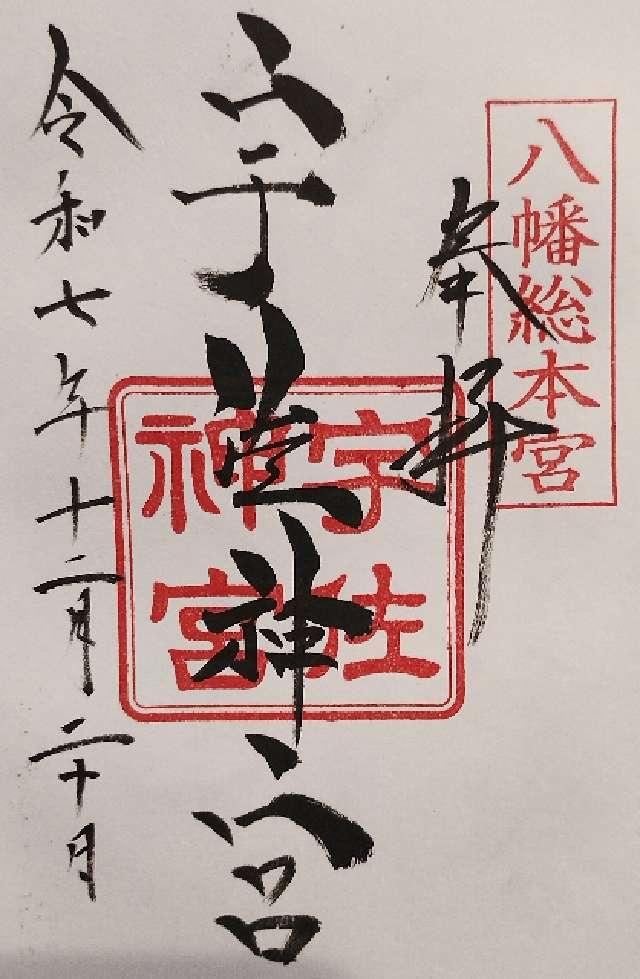 八幡総本宮
奉拝
宇佐神宮
宇佐神宮
令和七年十二月二十日